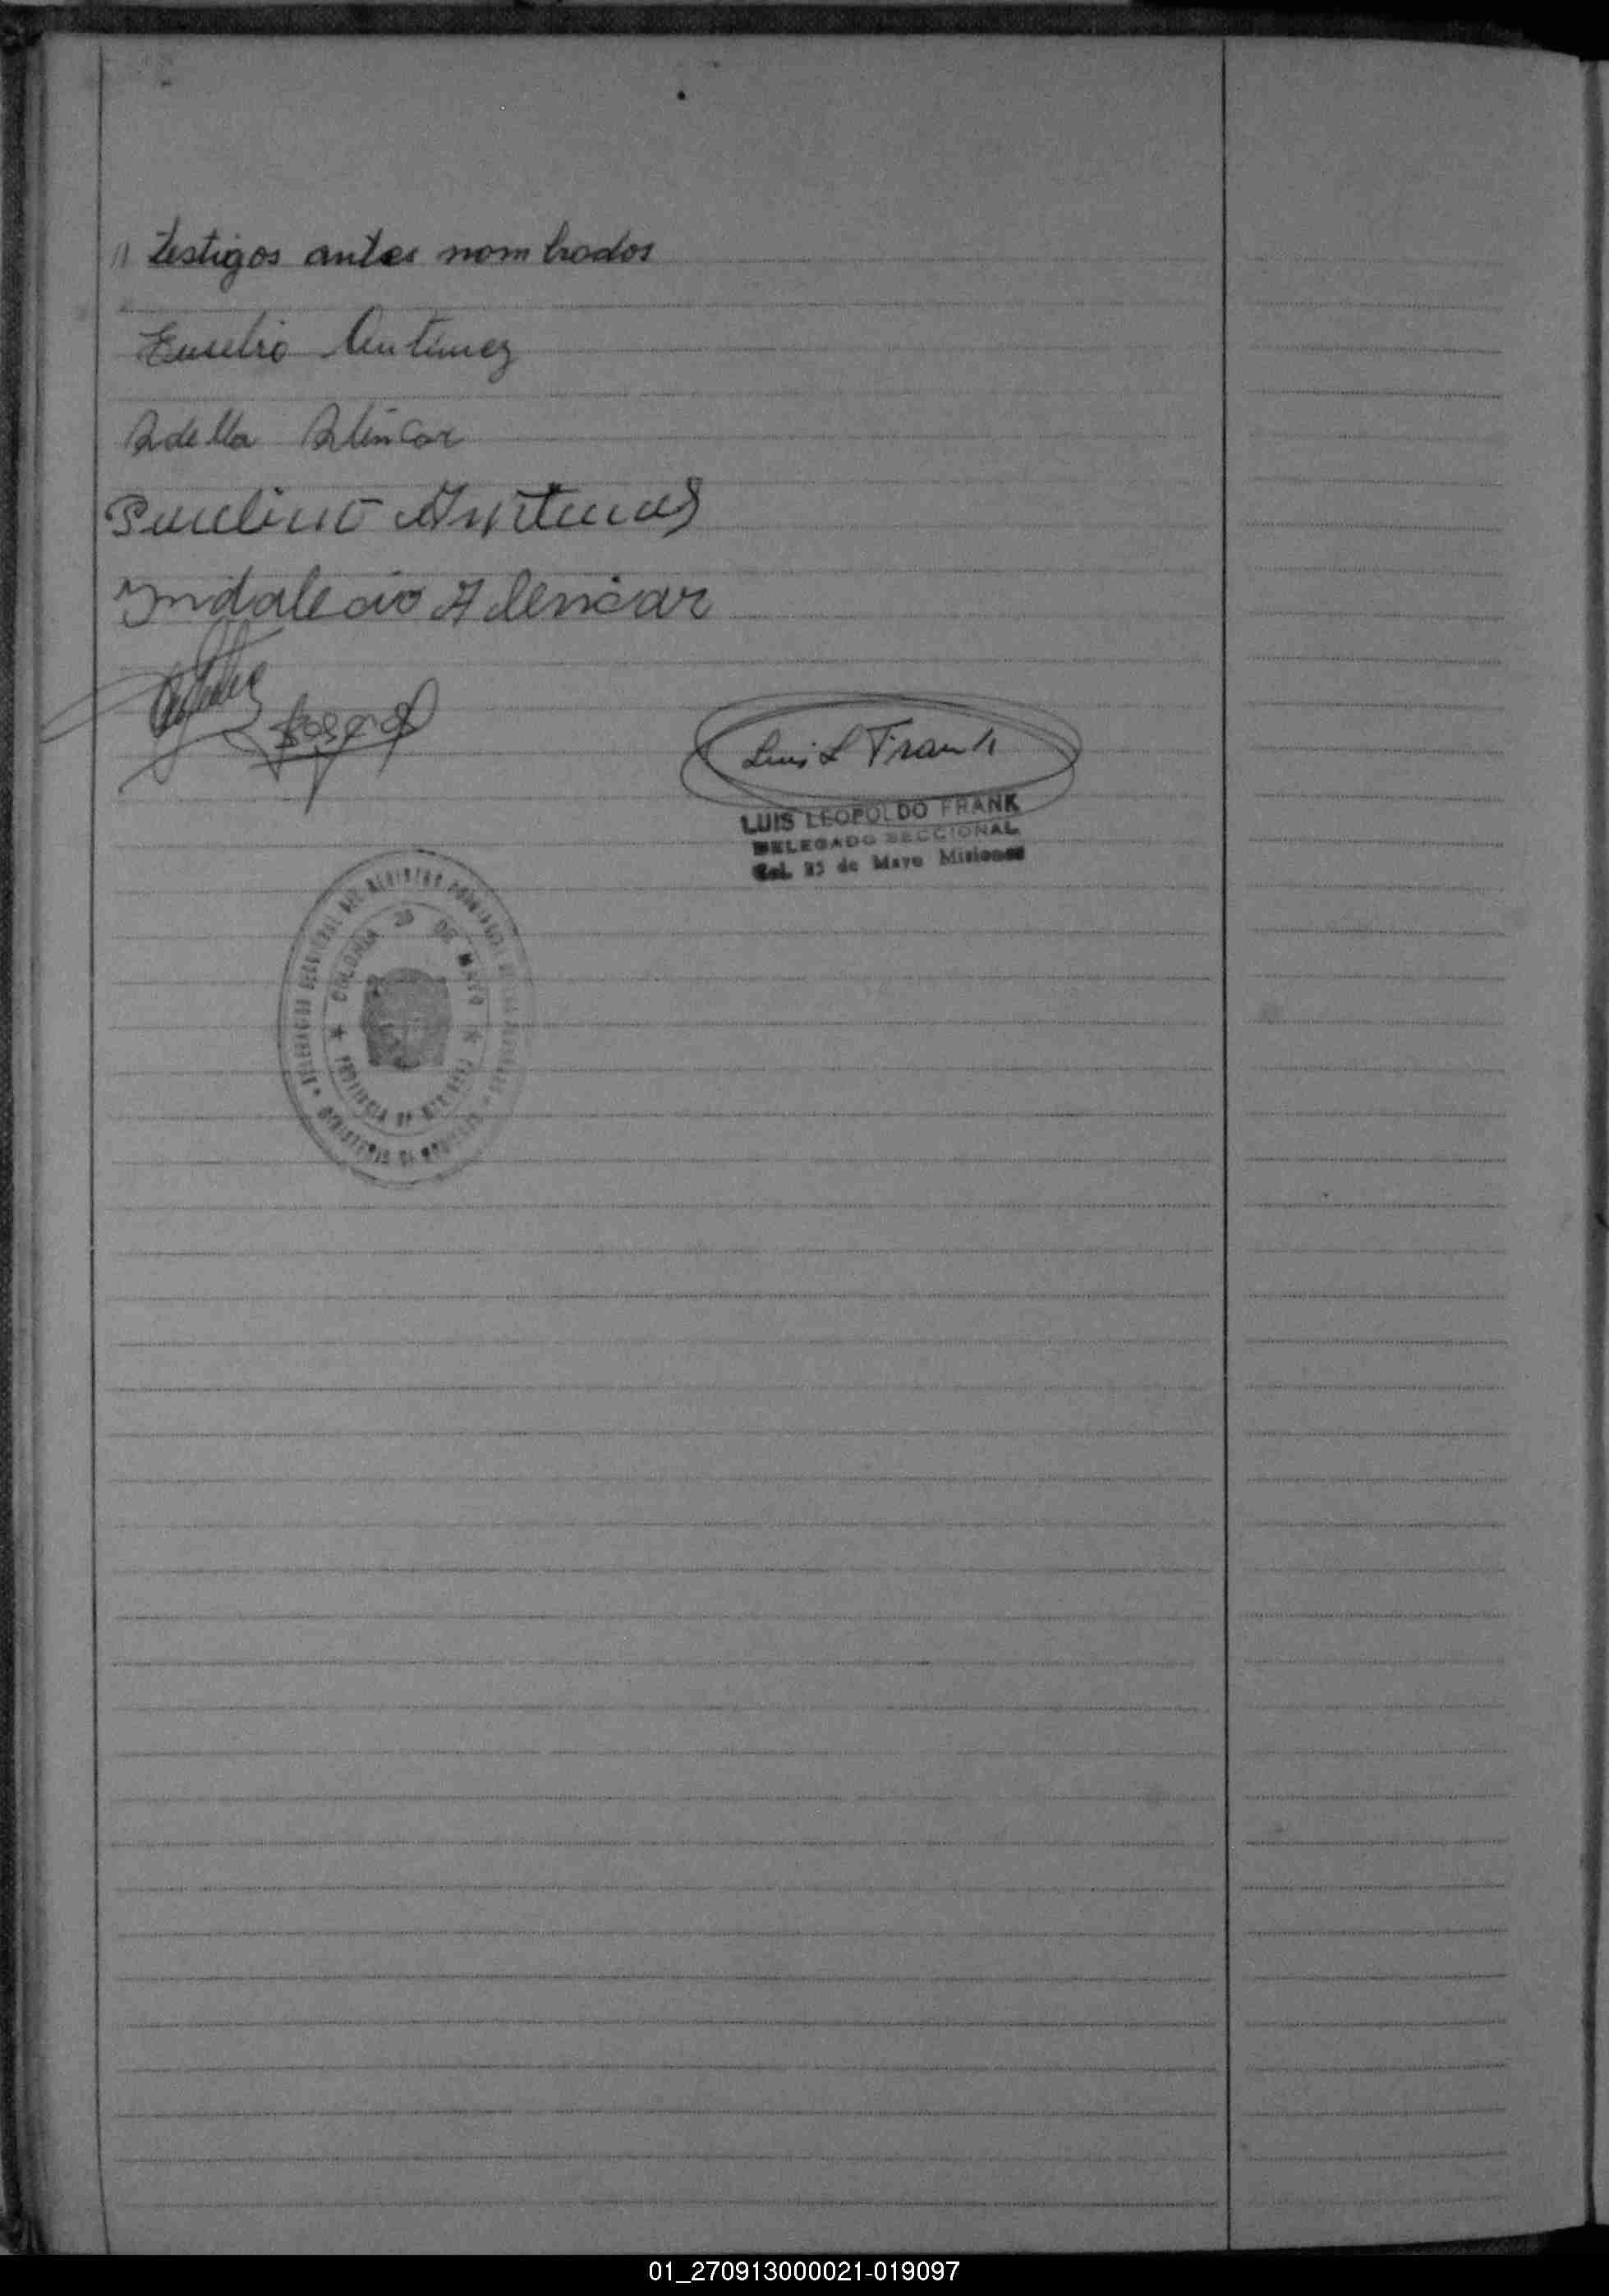 // testigos antes nombrados
Eusebio Antunez
Adella Alencar
Paulino Antunes
Yndalecio Alencar
Luis L Frank
LUIS LEOPOLDO FRANK
DELEGADO SECCIONAL
Col. 25 de Mayo Misiones
COLONIA 25 DE MAYO
PROVINCIA DE MISIONES
MINISTERIO DE GOBIERNO
01_270913000021-019097